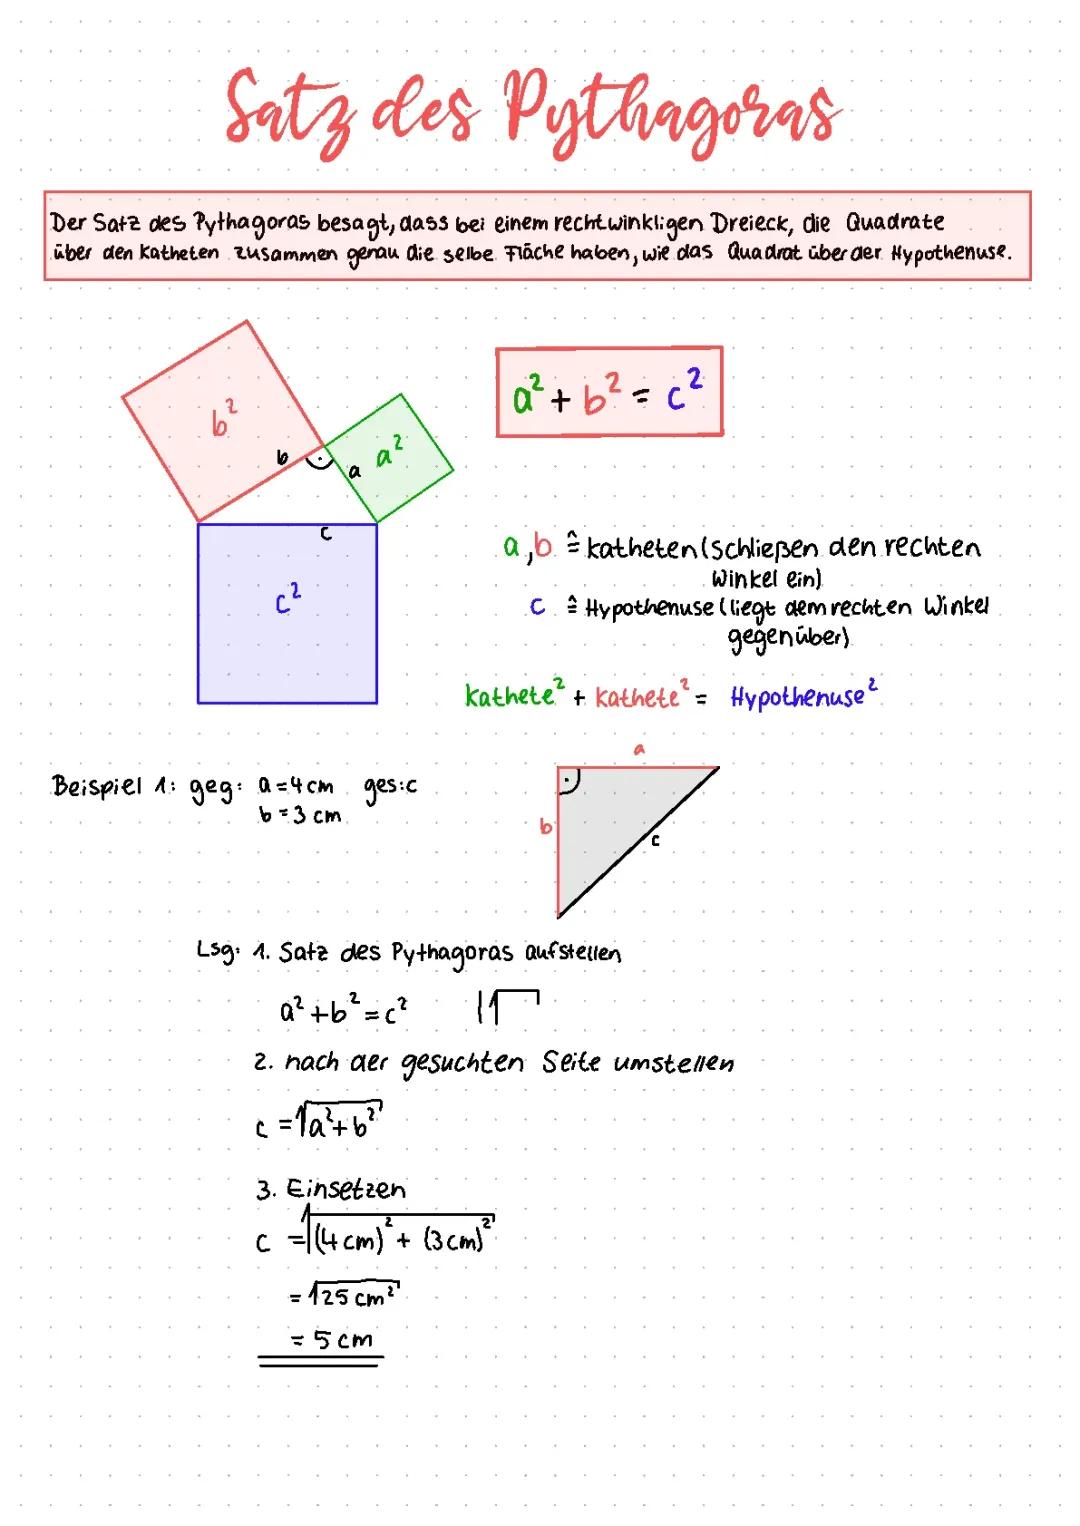 Satz des Pythagoras
Der Satz des Pythagoras besagt, dass bei einem rechtwinkligen Dreieck, die Quadrate
über den Katheten zusammen genau die selbe Fläche haben, wie das Quadrat über der Hypothenuse.
b²
a²
b
a
c
c²
a² + b² = c²
a, b ≙ Katheten (schließen den rechten
Winkel ein)
c ≙ Hypothenuse (liegt dem rechten Winkel
gegenüber)
Kathete² + Kathete² = Hypothenuse²
Beispiel 1: geg: a = 4 cm ges: c
b = 3 cm
a
b
c
Lsg: 1. Satz des Pythagoras aufstellen
a² + b² = c² |√
2. nach der gesuchten Seite umstellen
c = √a² + b²
3. Einsetzen
c = √(4 cm)² + (3 cm)²
= √25 cm²
= 5 cm